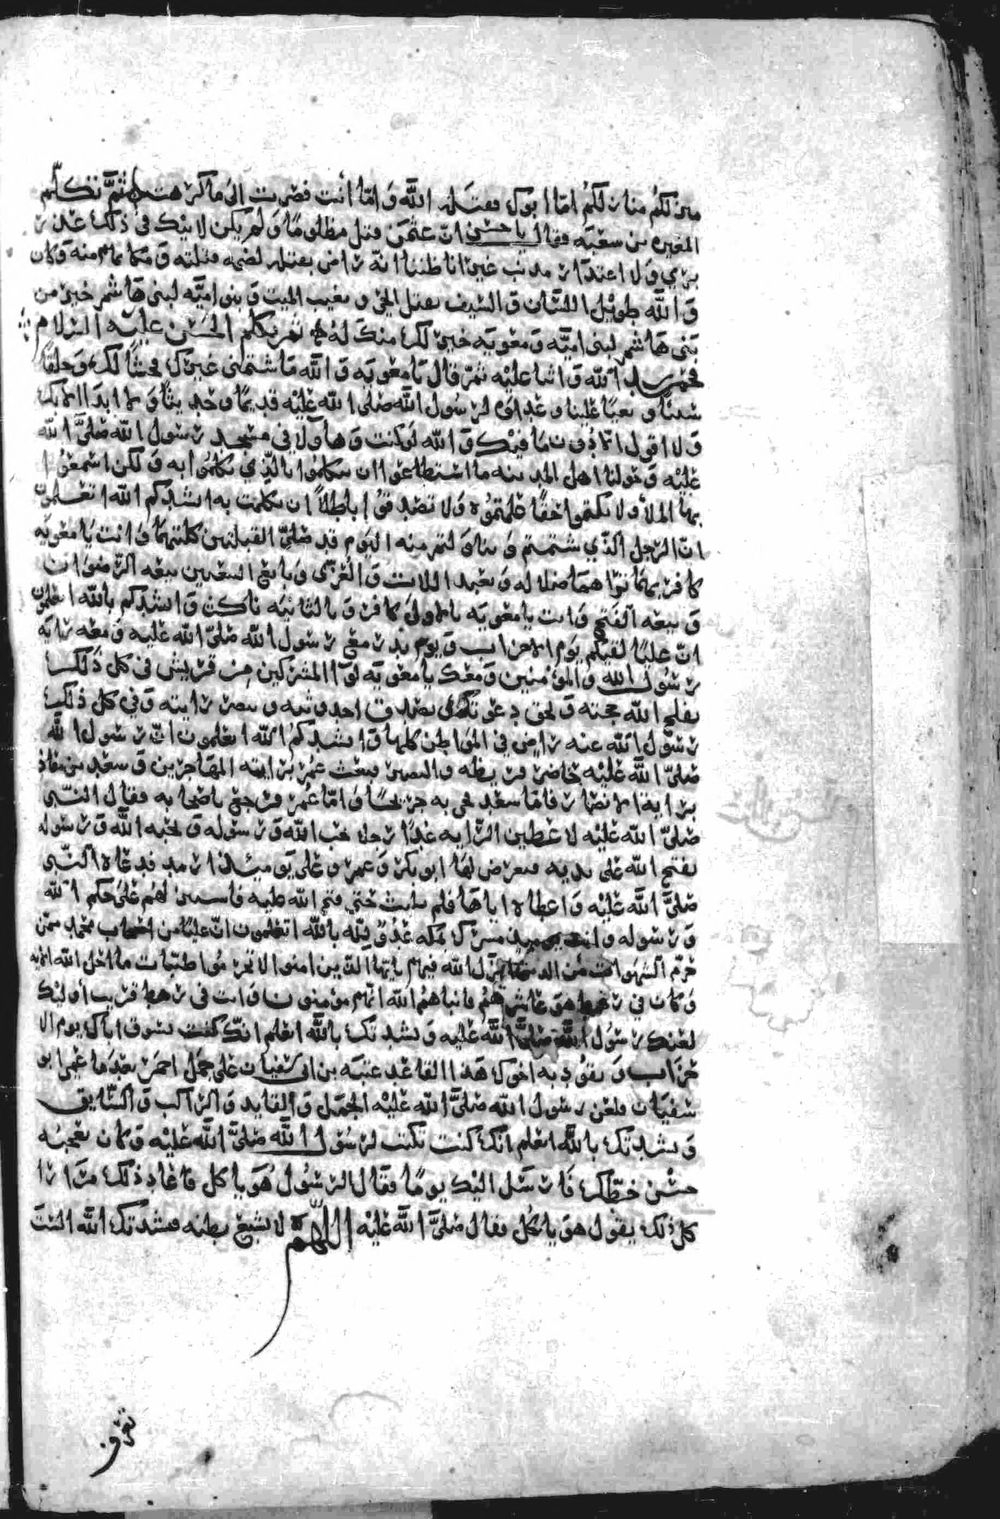 من لكم منازلكم اما ابوك فقتله الله واما أنت فصرت الى ما كرهت ثم تكلم
المغيرة بن شعبه فقال يا حسن ان عثمن قتل مظلوما ولم يكن لابيك في ذلك عذر
بري ولا اعتذار مذنب غير انا ظننا انه راض بقتله لضمه قتلته ومكانهم منه وكان
والله طويل اللسان والسيف يقتل الحي ويعيب الميت وبنو اميه لبني هاشم خير من
بني هاشم لبني اميه ومعويه خير لك منك له ثم تكلم الحسن عليه السلام
فحمد الله واثنا عليه ثم قال يا معويه والله ما شتمني غيرك فحشا لك وخلقا
سيئا وبغيا علينا وعداوة لرسول الله صلى الله عليه قديما وحديثا ولا ابدا الا بك
ولا اقول الا دون ما فيك والله لو كنت وهاولا في مسجد رسول الله صلى الله
عليه وحولنا اهل المدينه ما استطاعوا ان يتكلموا بالذي تكلموا به ولكن اسمعوا
ايها الملأ ولا تكتموا حقا علمتموه ولا تصدقوا باطلا ان تكلمت به انشدكم الله اتعلمون
ان الرجل الذي شتمتم وتناولتم منه اليوم قد صلى القبلتين كلتيهما وانت يا معويه
كافر بهما تراهما ضلاله وتعبد اللات والعزى وبايع البيعتين بيعه الرضوان
وبيعه الفتح وانت يا معويه بالاولى كافر وبالثانيه ناكث وانشدكم بالله اتعلمون
ان عليا لقيكم يوم الاحزاب ويوم بدر مع رسول الله صلى الله عليه ومعه رايه
رسول الله والمؤمنين ومعك يا معويه لوا المشركين من قريش في كل ذلك
يفلج الله حجته ويحق دعوته ويصدق احدوثته وينصر رايته وفي كل ذلك
رسول الله عنه راض في المواطن كلها وانشدكم الله اتعلمون ان رسول الله
صلى الله عليه حاضر قريظه والنضير فبعث عمر برايه المهاجرين وسعد بن معاذ
براية الانصار فاما سعد فجي به جريحا واما عمر فرجع باصحابه فقال النبي
صلى الله عليه لاعطين الرايه غدا رجلا يحب الله ورسوله ويحبه الله ورسوله
يفتح الله على يديه فتعرض لها ابو بكر وعمر وعلي يومئذ ارمد فدعاه النبي
صلى الله عليه واعطاه اياها فلم يلبث حتى فتح الله عليه فاستنزلهم على حكم الله
ورسوله وانت يومئذ مشرك بمكه عدو لله بالله اتعلمون ان عليا من اصحاب محمد ممن
حرم الشهوات من الدنيا فانزل الله فيهم يايها الذين امنوا لا تحرموا طيبات ما احل الله الايه
وكان في رهط هو عاشرهم فانباهم الله انهم مؤمنون وانت في رهط قريب أوليك
لعنك رسول الله صلى الله عليه ونشدتك بالله اتعلم انك كنت تسوق اباك يوم الا
حزاب ويقود به اخوك هذا القاعد عتبه بن ابي سفيان على جمل احمر بعد ما عمي ابو
سفيان فلعن رسول الله صلى الله عليه الجمل والقايد والراكب والسايق
ونشدتك بالله اتعلم انك كنت تكتب لرسول الله صلى الله عليه وكان يعجبه
حسن خطك فارسل اليك يوما فقال الرسول هو ياكل فاعاد ذلك مرارا
كل ذلك يقول هو ياكل فقال صلى الله عليه اللهم لا تشبع بطنه فنشدتك الله الست
تعرف